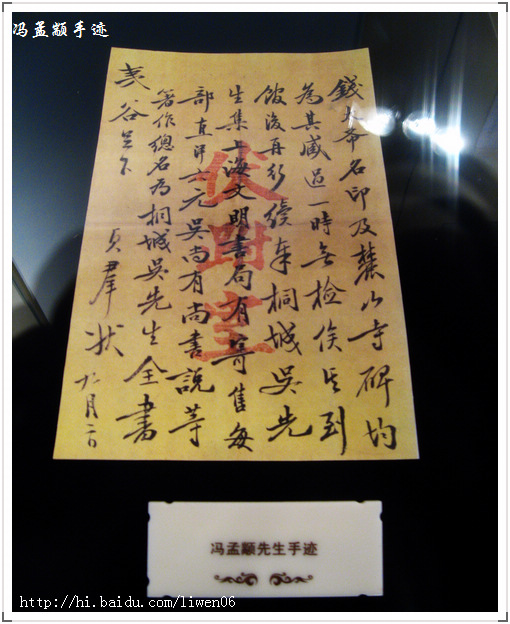 冯孟颛手迹
錢大名印及麓山寺碑均
為其藏過一時無檢俟到
館後再行續奉桐城吳先
生集上海文明書局有寄售每
部直洋六元吳尚有尚書說等
著作總名為桐城吳先生全書
夷谷足下
貞羣狀
伏跗室
冯孟颛先生手迹
http://hi.baidu.com/liwen06